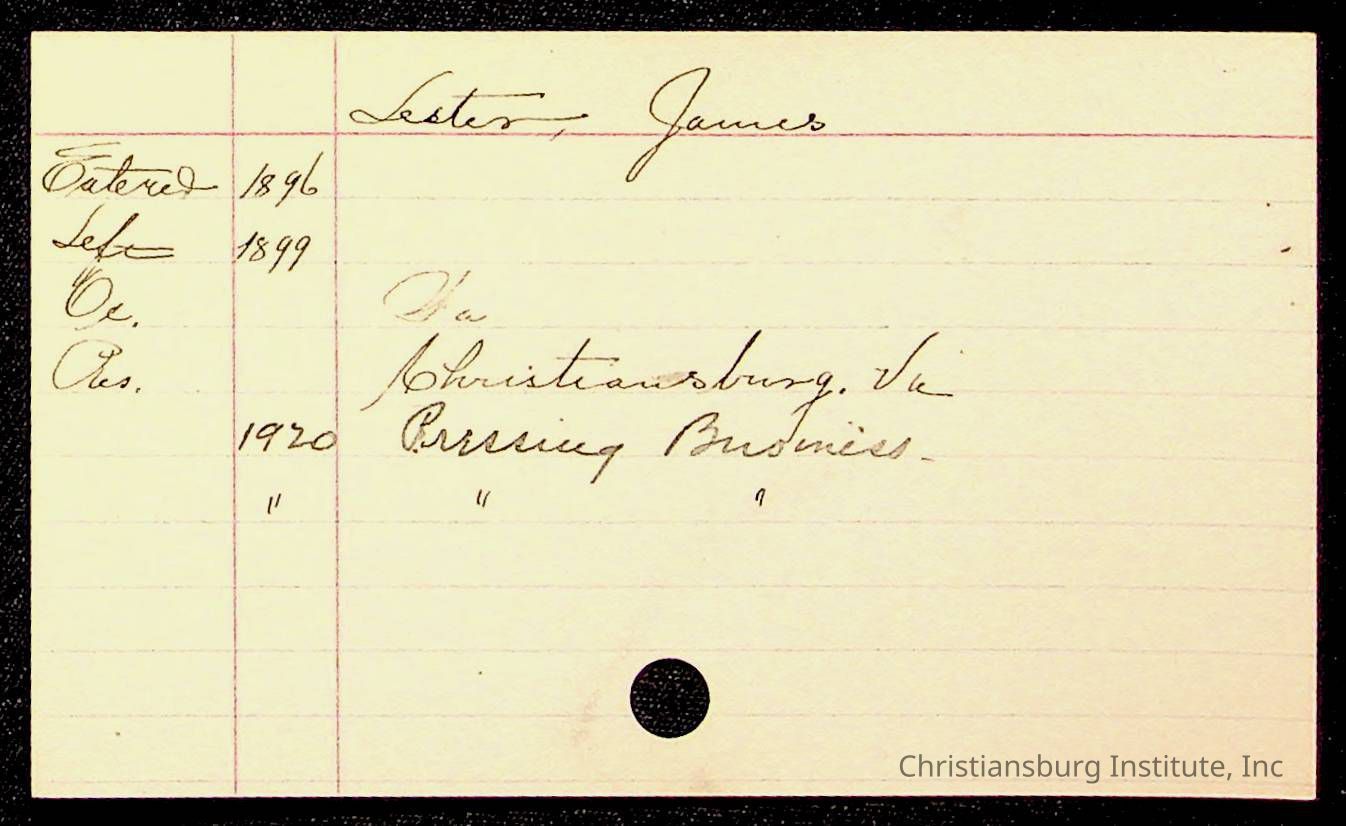 Lester, James
Entered 1896
Left 1899
Oc.
Res. Christiansburg. Va
1920 Pressing Business.
" " "
Christiansburg Institute, Inc